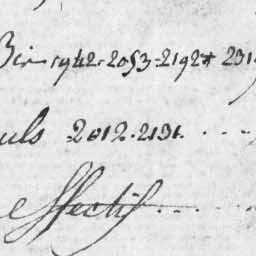 Bir 1942. 2053 - 2192 + 231
uls 2012. 2131. . . .
effectif. . . .